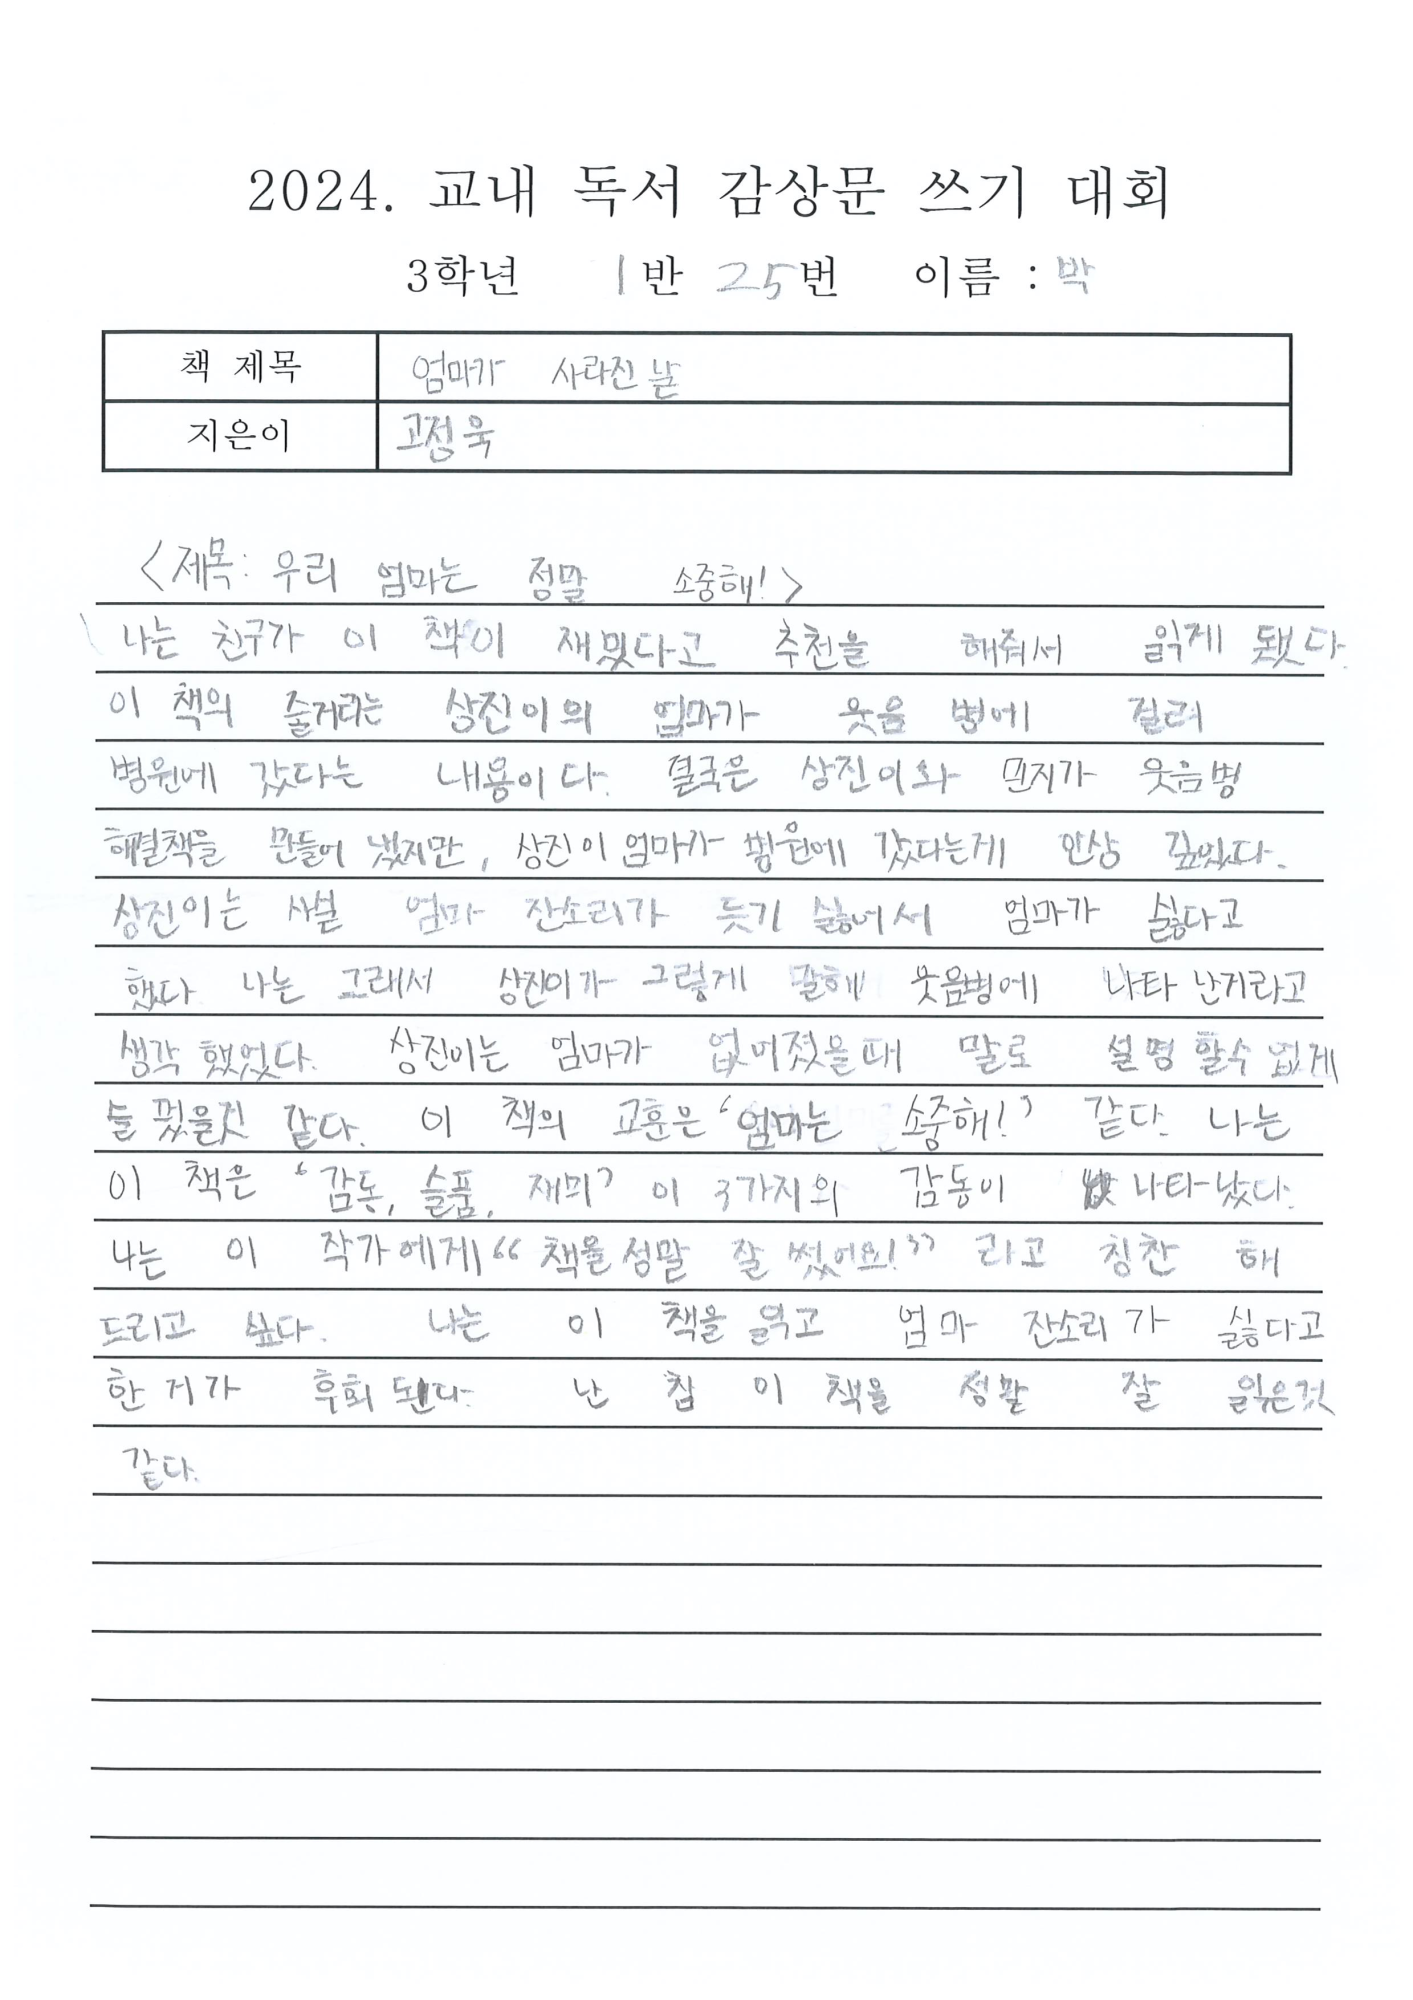 2024. 교내 독서 감상문 쓰기 대회
3학년 1반 25번 이름 : 박
책 제목 엄마가 사라진 날
지은이 고정욱
<제목: 우리 엄마는 정말 소중해!>
나는 친구가 이 책이 재밌다고 추천을 해줘서 읽게 됐다.
이 책의 줄거리는 상진이의 엄마가 웃음 병에 걸려
병원에 갔다는 내용이다. 결국은 상진이와 민지가 웃음병
해결책을 만들어 냈지만, 상진이 엄마가 병원에 갔다는게 인상 깊었다.
상진이는 사실 엄마 잔소리가 듣기 싫어서 엄마가 싫다고
했다 나는 그래서 상진이가 그렇게 말해 웃음병에 나타 난거라고
생각 했었다. 상진이는 엄마가 없어졋을때 말로 설명 할수 없게
슬펐을것 같다. 이 책의 교훈은 '엄마는 소중해!' 같다. 나는
이 책은 '감동, 슬픔, 재미' 이 3가지의 감동이 나타났다.
나는 이 작가에게 “책을 정말 잘 썼어요!” 라고 칭찬 해
드리고 싶다. 나는 이 책을 읽고 엄마 잔소리가 싫다고
한 거가 후회 된다. 난 참 이 책을 정말 잘 읽은것
같다.